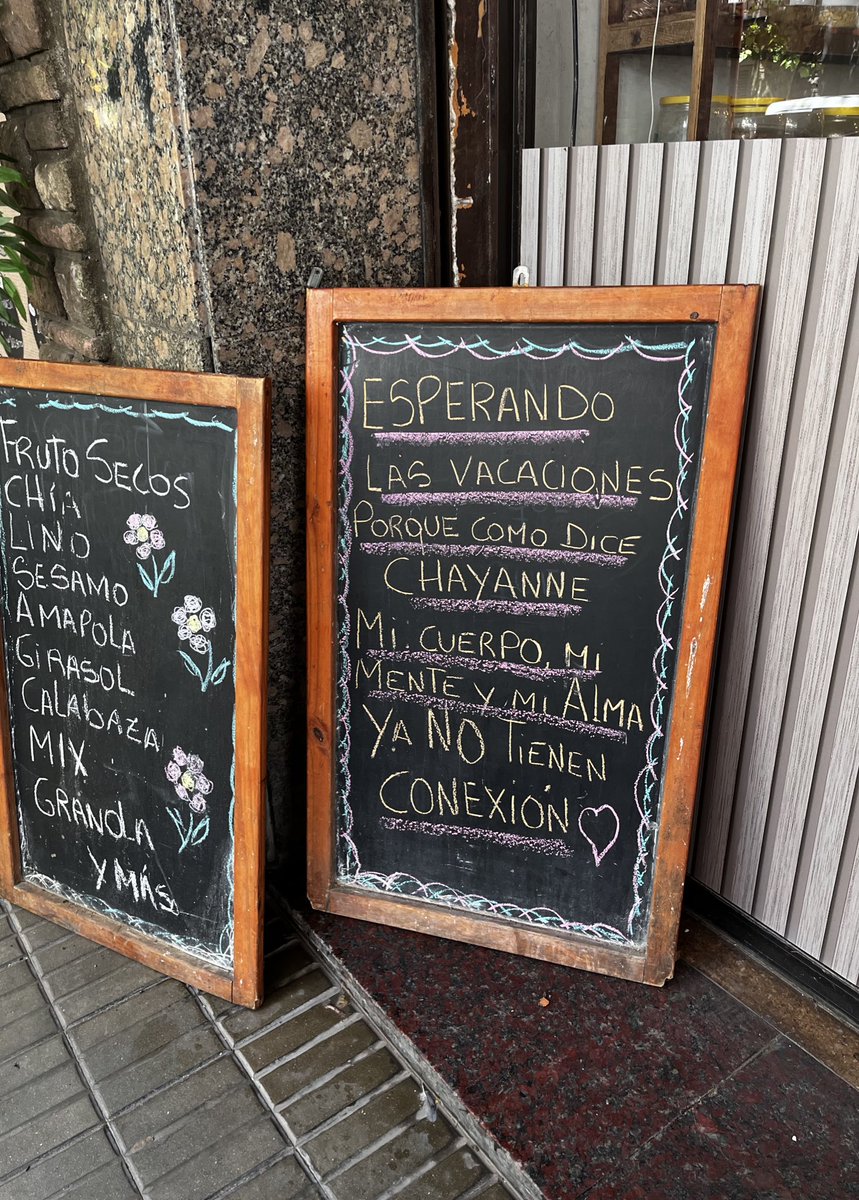 FRUTO SECOS
CHÍA
LINO
SESAMO
AMAPOLA
GIRASOL
CALABAZA
MIX
GRANOLA
Y MÁS
ESPERANDO
LAS VACACIONES
PORQUE COMO DICE
CHAYANNE
MI CUERPO, MI
MENTE Y MI ALMA
YA NO TIENEN
CONEXIÓN